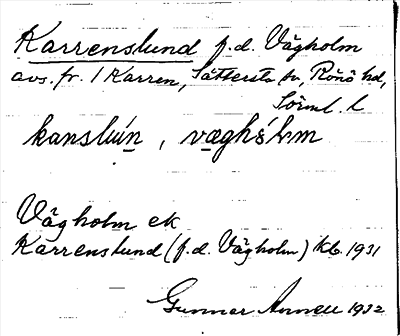 Karrenslund f.d. Vågholm
avs. fr. 1 Karren, Sättersta sn, Rönö hd,
Sörml. l
Vågholm ek
Karrenslund (f.d. Vågholm) Kb. 1931
Gunnar Annell 1932